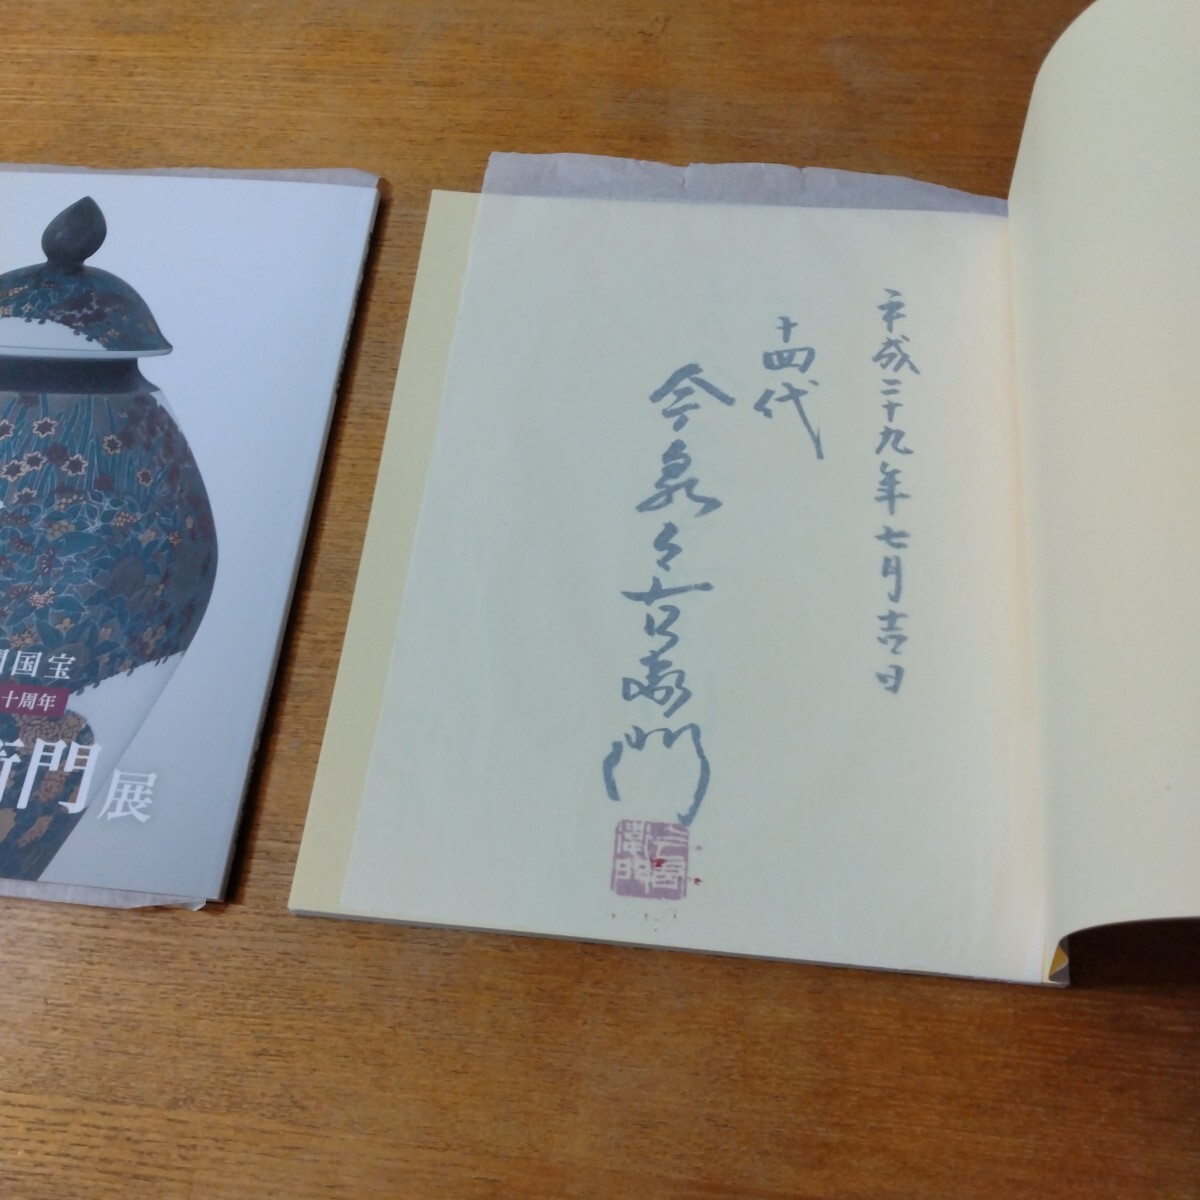 国宝
十周年
衛門展
平成二十九年七月吉日
十四代
今泉今右衛門